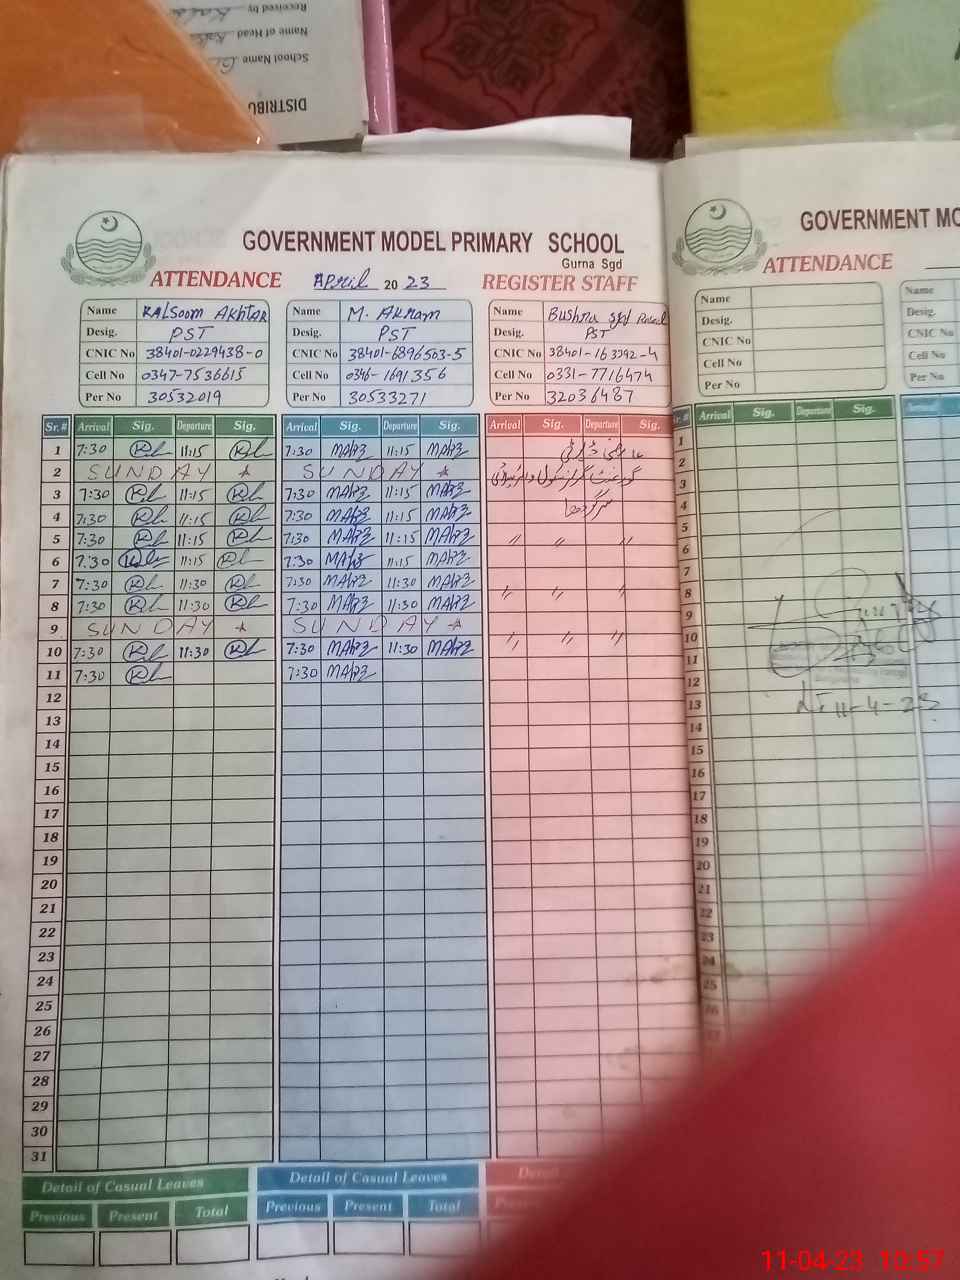 Received by
Name of Head
School Name
DISTRIBU
GOVERNMENT MODEL PRIMARY SCHOOL
Gurna Sgd
ATTENDANCE April 2023 REGISTER STAFF
Name Kalsoom Akhtar
Desig. PST
CNIC No 38401-0229438-0
Cell No 0347-7536615
Per No 30532019
Name M. Akram
Desig. PST
CNIC No 38401-6896503-5
Cell No 0346-1691356
Per No 30533271
Name Bushra
Desig. PST
CNIC No 38401-163392-4
Cell No 0331-7716474
Per No 32036487
Sr.# Arrival Sig. Departure Sig. Arrival Sig. Departure Sig. Arrival Sig. Departure Sig.
1 7:30 11:15 7:30 11:15
2 SUNDAY SUNDAY
3 7:30 11:15 7:30 11:15
4 7:30 11:15 7:30 11:15
سرگودھا
5 7:30 11:15 7:30 11:15 " " "
6 7:30 11:15 7:30 11:15
7 7:30 11:30 7:30 11:30 " " "
8 7:30 11:30 7:30 11:30
9 SUNDAY SUNDAY
10 7:30 11:30 7:30 11:30 " " "
11 7:30 7:30
12
13
14
15
16
17
18
19
20
21
22
23
24
25
26
27
28
29
30
31
Detail of Casual Leaves Detail of Casual Leaves Detail
Previous Present Total Previous Present Total
GOVERNMENT MO
ATTENDANCE
Name
Desig.
CNIC No
Cell No
Per No
Name
Desig.
CNIC No
Cell No
Per No
Sr.# Arrival Sig. Departure Sig. Arrival
1
2
3
4
5
6
7
8
9
10
11
12
13
14
15
16
17
18
19
20
21
22
23
24
25
11-4-23
11-04-23 10:57